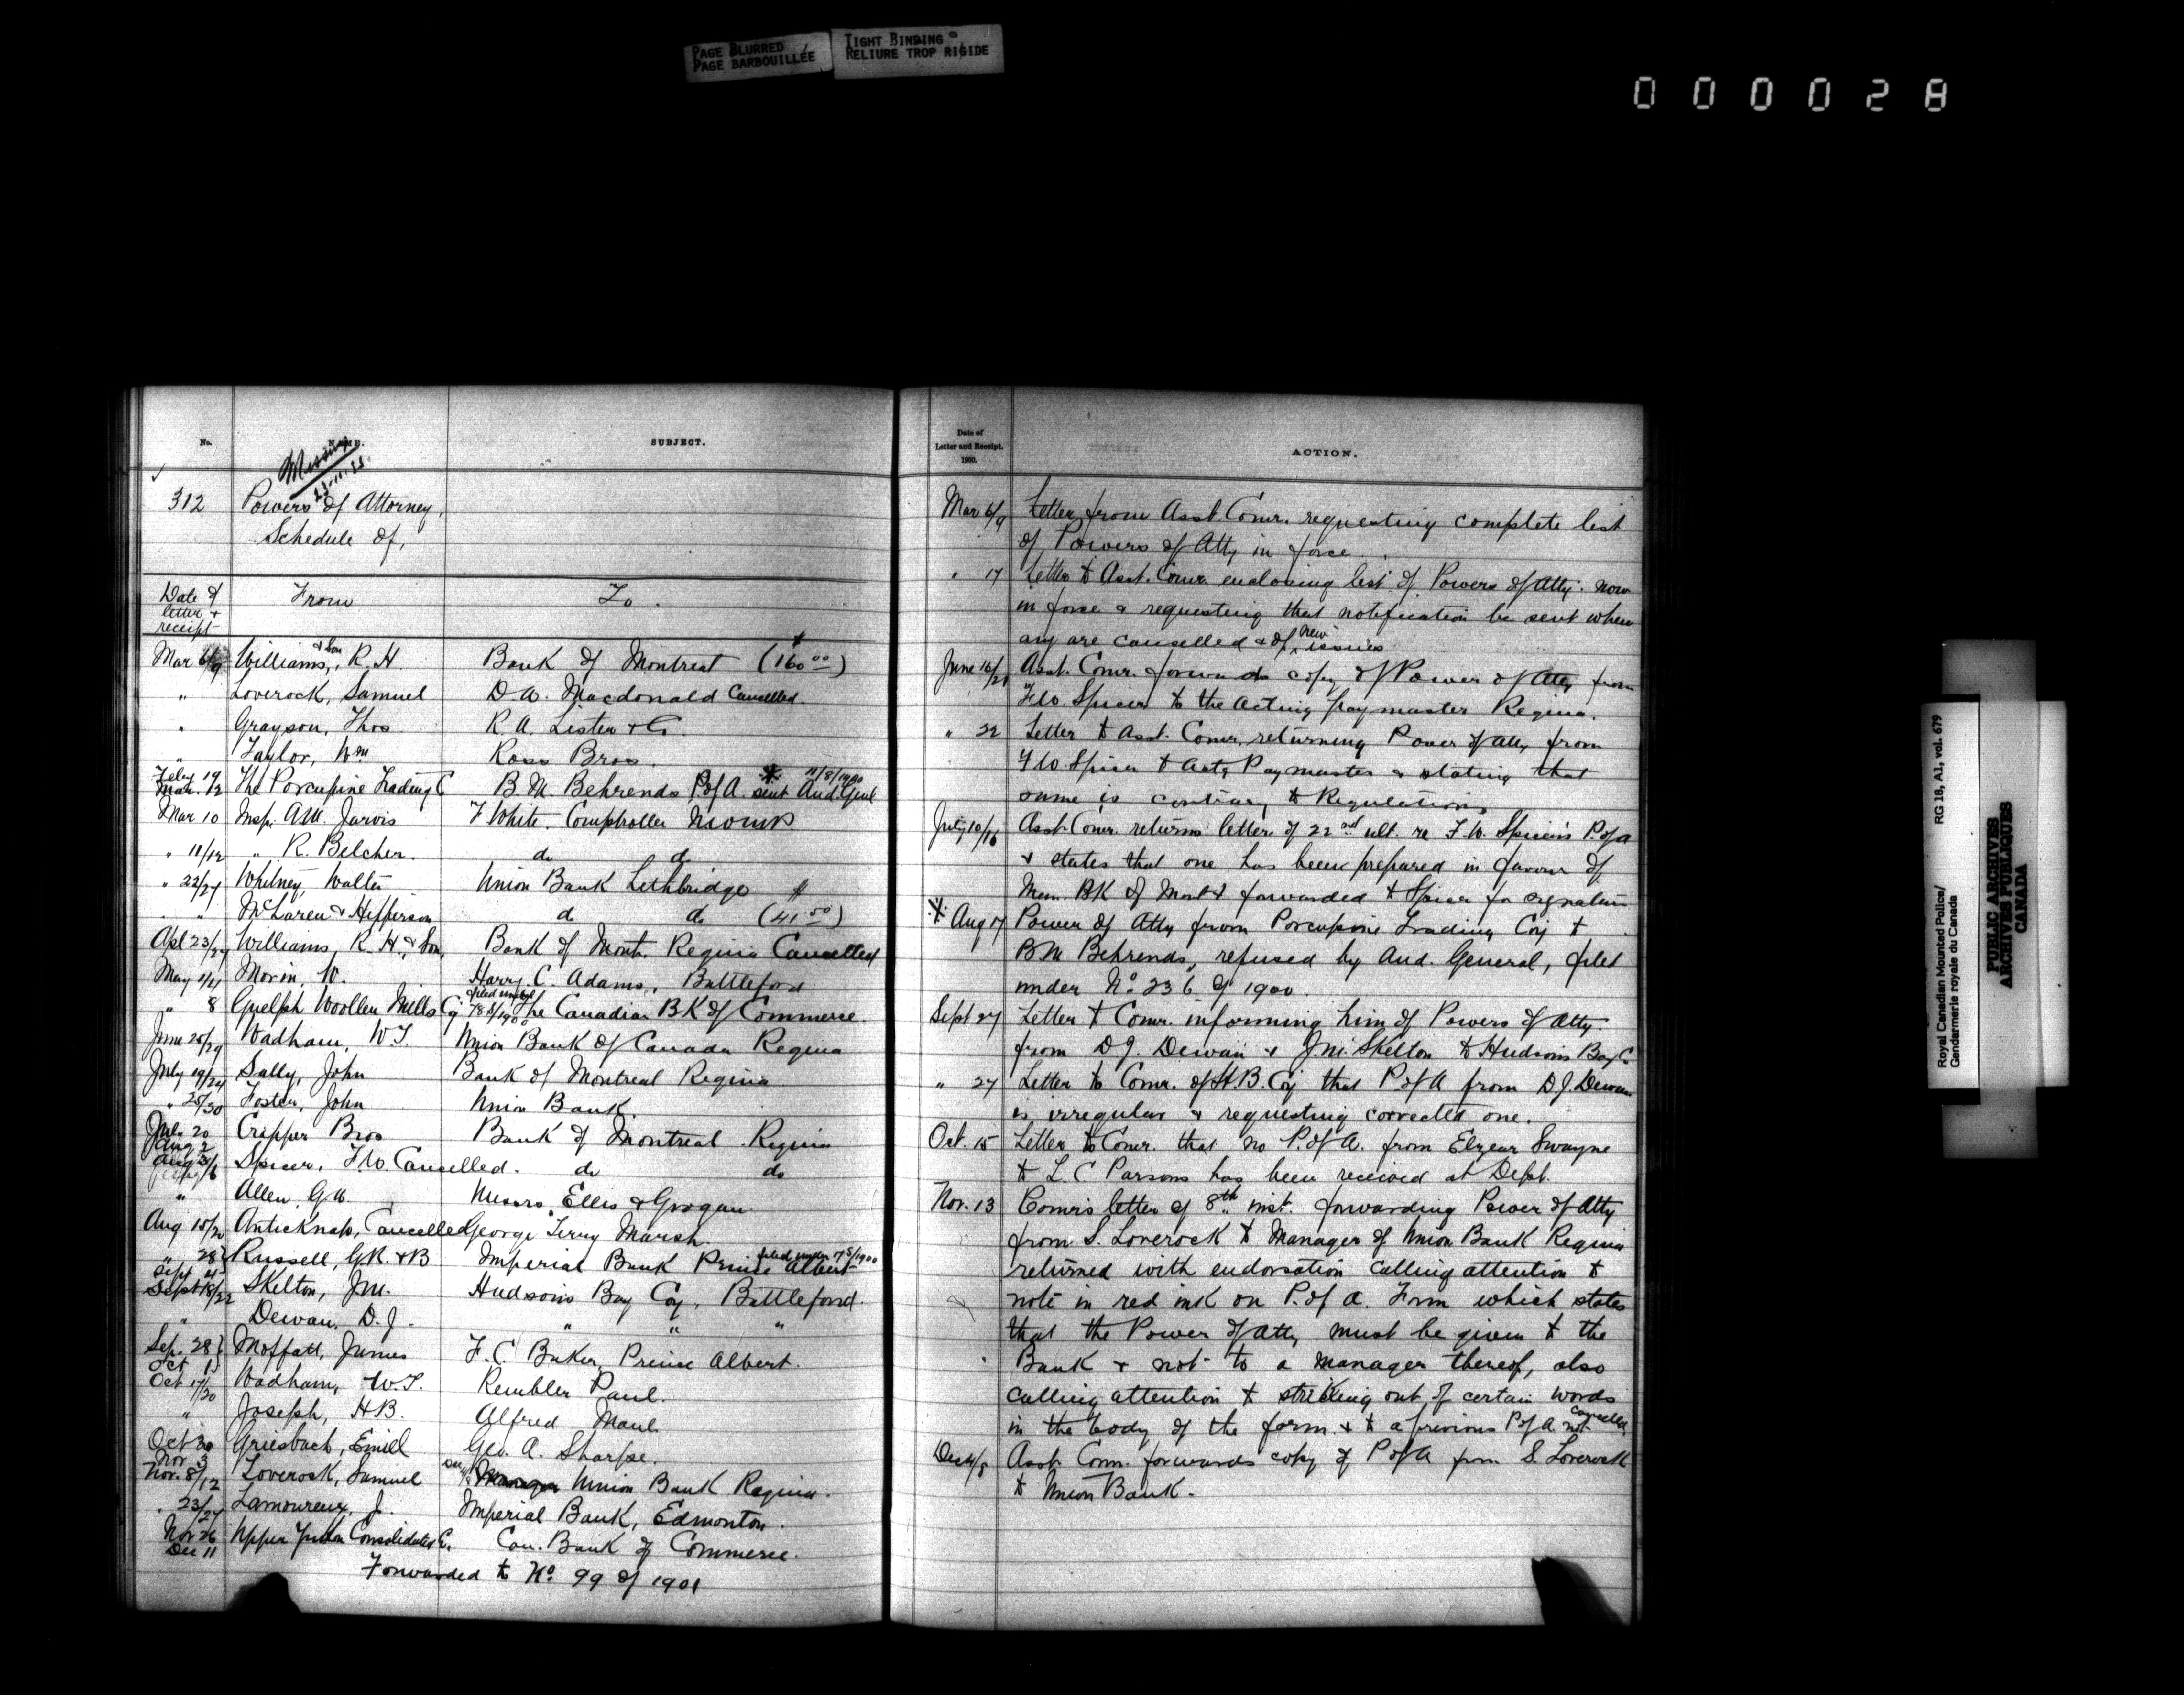 PAGE BLURRED
PAGE BARBOUILLÉE
TIGHT BINDING
RELIURE TROP RIGIDE
000028
No.
NAME.
SUBJECT.
Missing
23-11-
312 Powers of Attorney,
Schedule of,
Date of letter & receipt From To.
Mar 6/9 Williams, & Son, R. H Bank of Montreal ($160 00)
" Loverock, Samuel D.W. Macdonald Cancelled.
" Grayson, Thos R. A. Lister & Co.
" Taylor, Wm Ross Bros.
Feby 19 Mar. 12 The Porcupine Trading C B. M. Behrends P of A. sent Aud. Genl 11/8/1900
Mar 10 Insp. A.M. Jarvis F White. Comptroller NWMP
" 11/12 " R. Belcher. do do
" 22/27 Whitney, Walter Union Bank Lethbridge
" " McLaren & Hefferson do do ($41 50)
Apl 23/27 Williams, R. H. & Son, Bank of Mont. Regina Cancelled
May 1/4 Morin, W. Harry C. Adams, Battleford
" 8 Guelph Woollen Mills Coy filed under 785/1900 The Canadian BK of Commerce
June 25/29 Wadham, W.T. Union Bank of Canada Regina
July 19/24 Sally, John Bank of Montreal Regina
" 25/30 Foster, John Union Bank.
July 20 Aug 2 Cropper Bros Bank of Montreal Regina
Spicer, F.W. Cancelled. do do
" Allen, G.W. Messrs Ellis & Grogan.
Aug 15/20 Anticknap, Cancelled George Terry Marsh.
" 28 Sept 4 Russell, G.R. & B Imperial Bank Prince Albert filed under 175/1900
Sept 18/22 Skelton, J.M. Hudsons Bay Coy, Battleford.
" Dewan, D.J. " " "
Sep. 28 Oct 1 Moffatt, James F.C. Baker, Prince Albert.
Oct 17/20 Wadham, W.T. Rembler Paul.
" Joseph, H.B. Alfred Maul.
Oct 30 Nov 3 Griesbach, Emill Geo. A. Sharpe.
Nov. 8/12 Loverock, Samuel Manager Union Bank Regina.
" 23/27 Lamoureux, J. Imperial Bank, Edmonton.
Nov 26 Dec 11 Upper Yukon Consolidated Co. Can. Bank of Commerce.
Forwarded to No 99 of 1901
Date of
Letter and Receipt.
1900.
ACTION.
Mar 6/9 Letter from Asst. Comr. requesting complete list
of Powers of Atty in force.
" 17 Letter to Asst. Comr. enclosing list of Powers of Atty. now
in force & requesting that notification be sent when
any are cancelled & of new issues
June 16/20 Asst. Comr. forwards copy of Power of Atty from
F.W. Spicer to the Acting Paymaster Regina.
" 22 Letter to Asst. Comr. returning Power of Atty from
F.W. Spicer to Actg Paymaster & stating that
same is contrary to Regulations
July 10/16 Asst. Comr. returns letter of 22nd ult. re F.W. Spicer's P. of A
& states that one has been prepared in favour of
Man. BK of Mont & forwarded to Spicer for signature
Aug 17 Power of Atty from Porcupine Trading Coy to
B.M. Behrends, refused by Aud. General, filed
under No 236 of 1900.
Sept 27 Letter to Comr. informing him of Powers of Atty.
from D.J. Dewan & J.M. Skelton to Hudson's Bay Co
" 27 Letter to Comr. of H.B. Coy that P of A from D.J. Dewan
is irregular & requesting corrected one.
Oct. 15 Letter to Comr. that no P. of A. from Elzear Swayne
to L. C Parsons has been received at Dept.
Nov. 13 Comr's letter of 8th inst. forwarding Power of Atty
from S. Loverock to Manager of Union Bank Regina
returned with endorsation calling attention to
note in red ink on P. of A. Form which states
that the Power of Atty must be given to the
Bank & not to a manager thereof, also
calling attention to striking out of certain words
in the body of the form & to a previous P of A. not cancelled.
Dec 4/8 Asst. Comr. forwards copy of P of A from S. Loverock
to Union Bank.
Royal Canadian Mounted Police/
Gendarmerie royale du Canada
RG 18, A1, vol. 679
PUBLIC ARCHIVES
ARCHIVES PUBLIQUES
CANADA